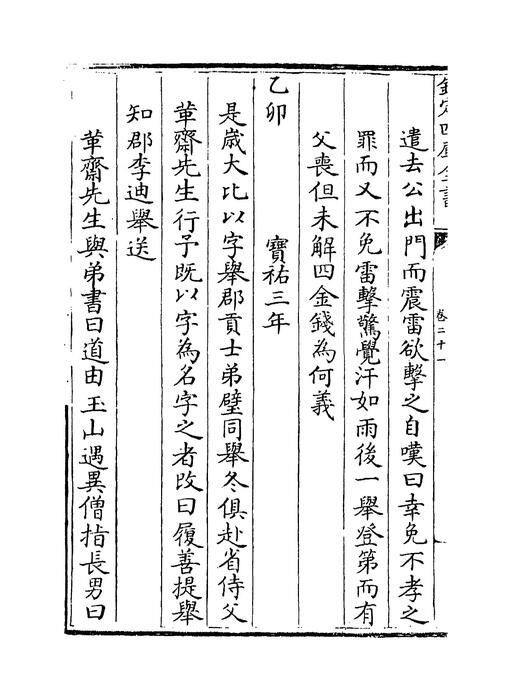 欽定四庫全書
卷二十一
遣去公出門而震雷欲擊之自嘆曰幸免不孝之
罪而又不免雷擊驚覺汗如雨後一舉登第而有
父喪但未解四金錢為何義
乙卯 寶祐三年
是歲大比以字舉郡貢士弟璧同舉冬俱赴省侍父
革齋先生行予既以字為名字之者改曰履善提舉
知郡李迪舉送
革齋先生與弟書曰道由玉山遇異僧指長男曰